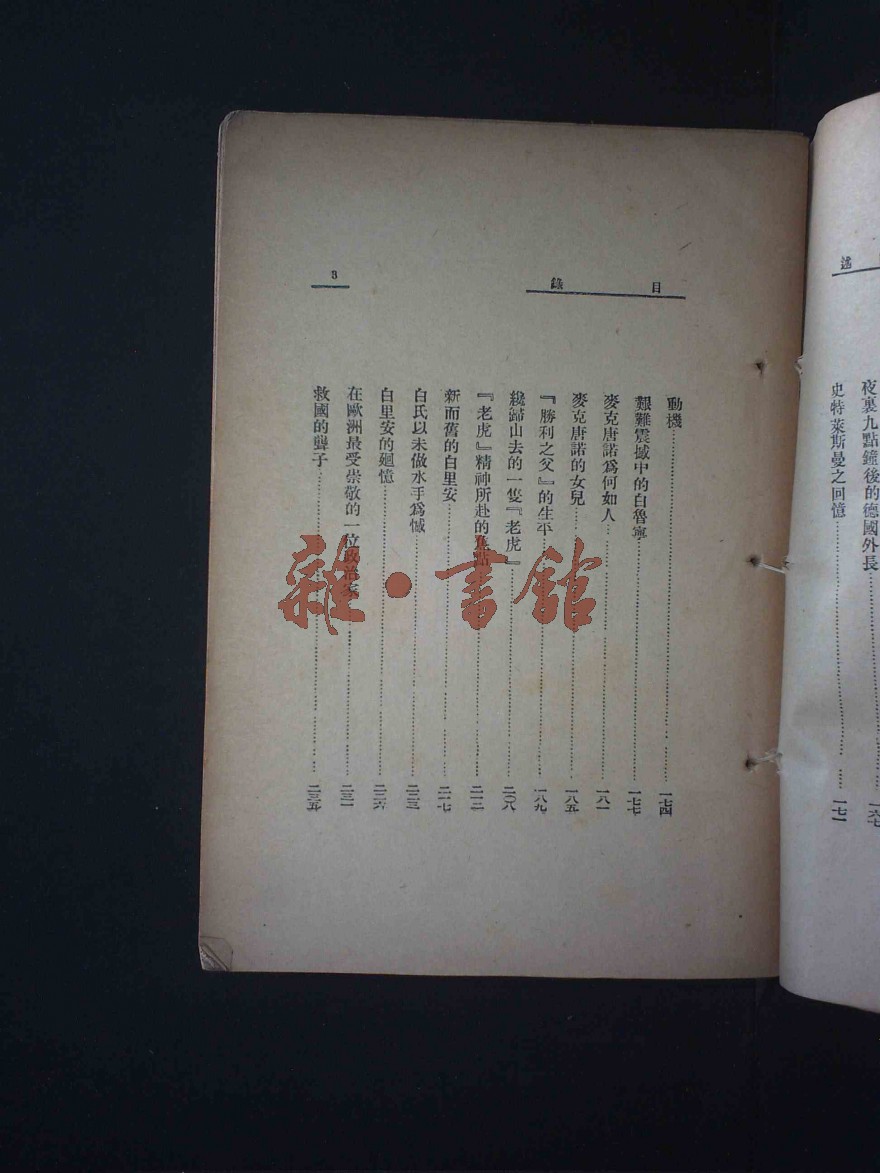 述
夜裏九點鐘後的德國外長……一六七
史特萊斯曼之回憶……一七一
目錄
3
動機……一七四
艱難震撼中的白魯寧……一七七
麥克唐諾爲何如人……一八一
麥克唐諾的女兒……一八五
『勝利之父』的生平……一八九
纔歸山去的一隻『老虎』……二〇八
『老虎』精神所赴的焦點……二一二
新而舊的白里安……二一七
白氏以未做水手爲憾……二二三
白里安的廻憶……二二六
在歐洲最受崇敬的一位政治家……二三一
救國的聾子……二三五
雜·書館